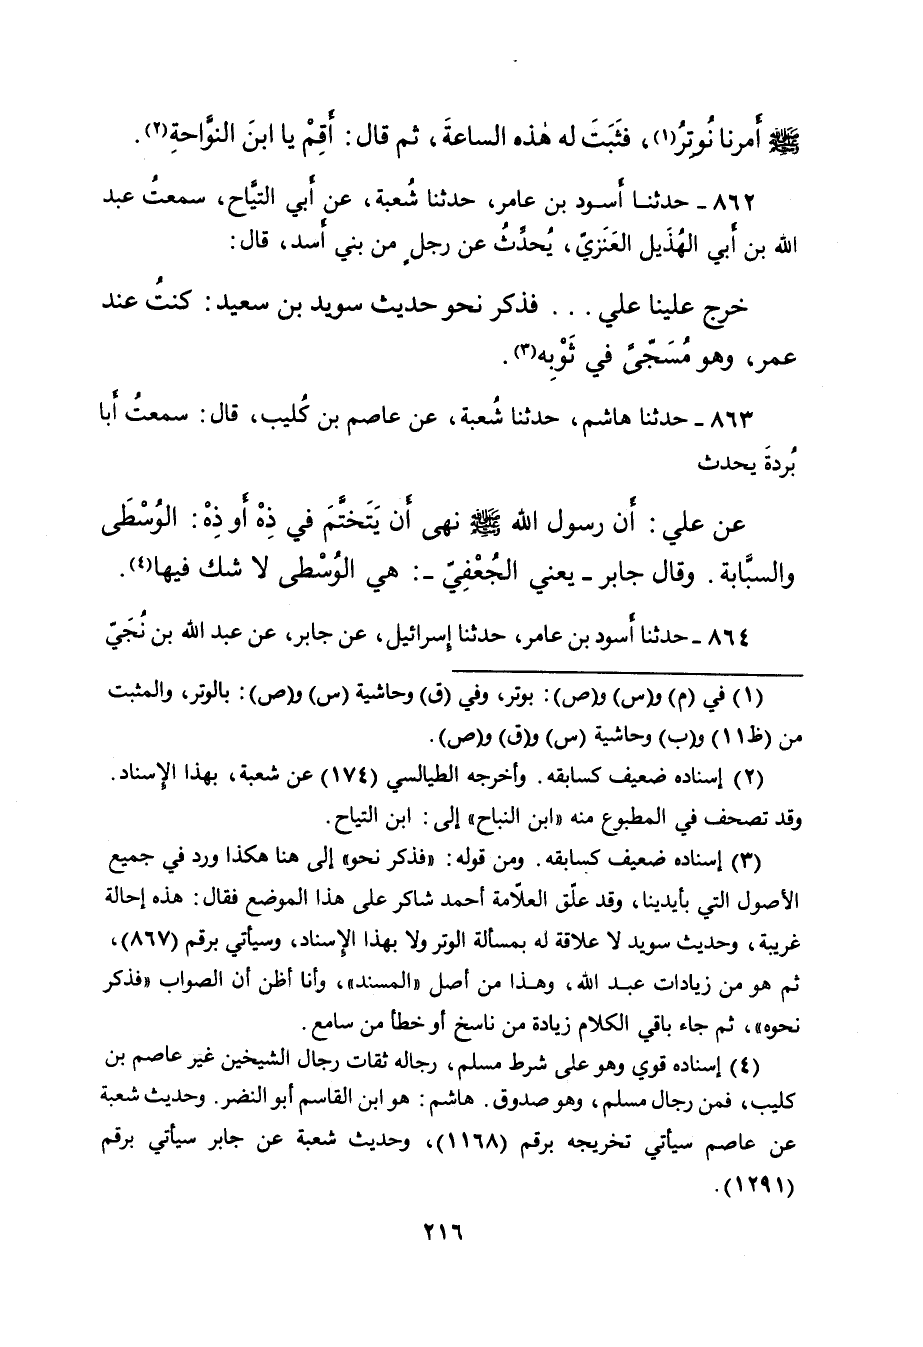 ﷺ أَمرنا نُوتِرُ(١)، فثَبَتَ له هٰذه الساعةَ، ثم قال: أَقِمْ يا ابنَ النوَّاحةِ(٢).
٨٦٢ ـ حدثنا أَسود بن عامر، حدثنا شُعبة، عن أَبي التيَّاح، سمعتُ عبد
الله بن أَبي الهُذَيل العَنَزيّ، يُحدِّثُ عن رجلٍ من بني أَسد، قال:
خرج علينا علي . . . فذكر نحو حديث سويد بن سعيد: كنتُ عند
عمر، وهو مُسَجّىً في ثَوْبِه(٣).
٨٦٣ ـ حدثنا هاشم، حدثنا شُعبة، عن عاصم بن كُليب، قال: سمعتُ أَبا
بُردةَ يحدث
عن علي: أَن رسول الله ﷺ نهى أَن يَتَختَّمَ في ذِهْ أَو ذِهْ: الوُسْطَى
والسبَّابة. وقال جابر ـ يعني الجُعْفِيّ ـ: هي الوُسْطى لا شك فيها(٤).
٨٦٤ ـ حدثنا أَسود بن عامر، حدثنا إسرائيل، عن جابر، عن عبد الله بن نُجَيّ
(١) في (م) و(س) و(ص): بوتر، وفي (ق) وحاشية (س) و(ص): بالوتر، والمثبت
من (ظ١١) و(ب) وحاشية (س) و(ق) و(ص).
(٢) إسناده ضعيف كسابقه. وأخرجه الطيالسي (١٧٤) عن شعبة، بهذا الإسناد.
وقد تصحف في المطبوع منه «ابن النباح» إلى: ابن التياح.
(٣) إسناده ضعيف كسابقه. ومن قوله: «فذكر نحو» إلى هنا هكذا ورد في جميع
الأصول التي بأيدينا، وقد علّق العلّامة أحمد شاكر على هذا الموضع فقال: هذه إحالة
غريبة، وحديث سويد لا علاقة له بمسألة الوتر ولا بهذا الإسناد، وسيأتي برقم (٨٦٧)،
ثم هو من زيادات عبد الله، وهذا من أصل «المسند»، وأنا أظن أن الصواب «فذكر
نحوه»، ثم جاء باقي الكلام زيادة من ناسخ أو خطأ من سامع.
(٤) إسناده قوي وهو على شرط مسلم، رجاله ثقات رجال الشيخين غير عاصم بن
كليب، فمن رجال مسلم، وهو صدوق. هاشم: هو ابن القاسم أبو النضر. وحديث شعبة
عن عاصم سيأتي تخريجه برقم (١١٦٨)، وحديث شعبة عن جابر سيأتي برقم
(١٢٩١).
٢١٦